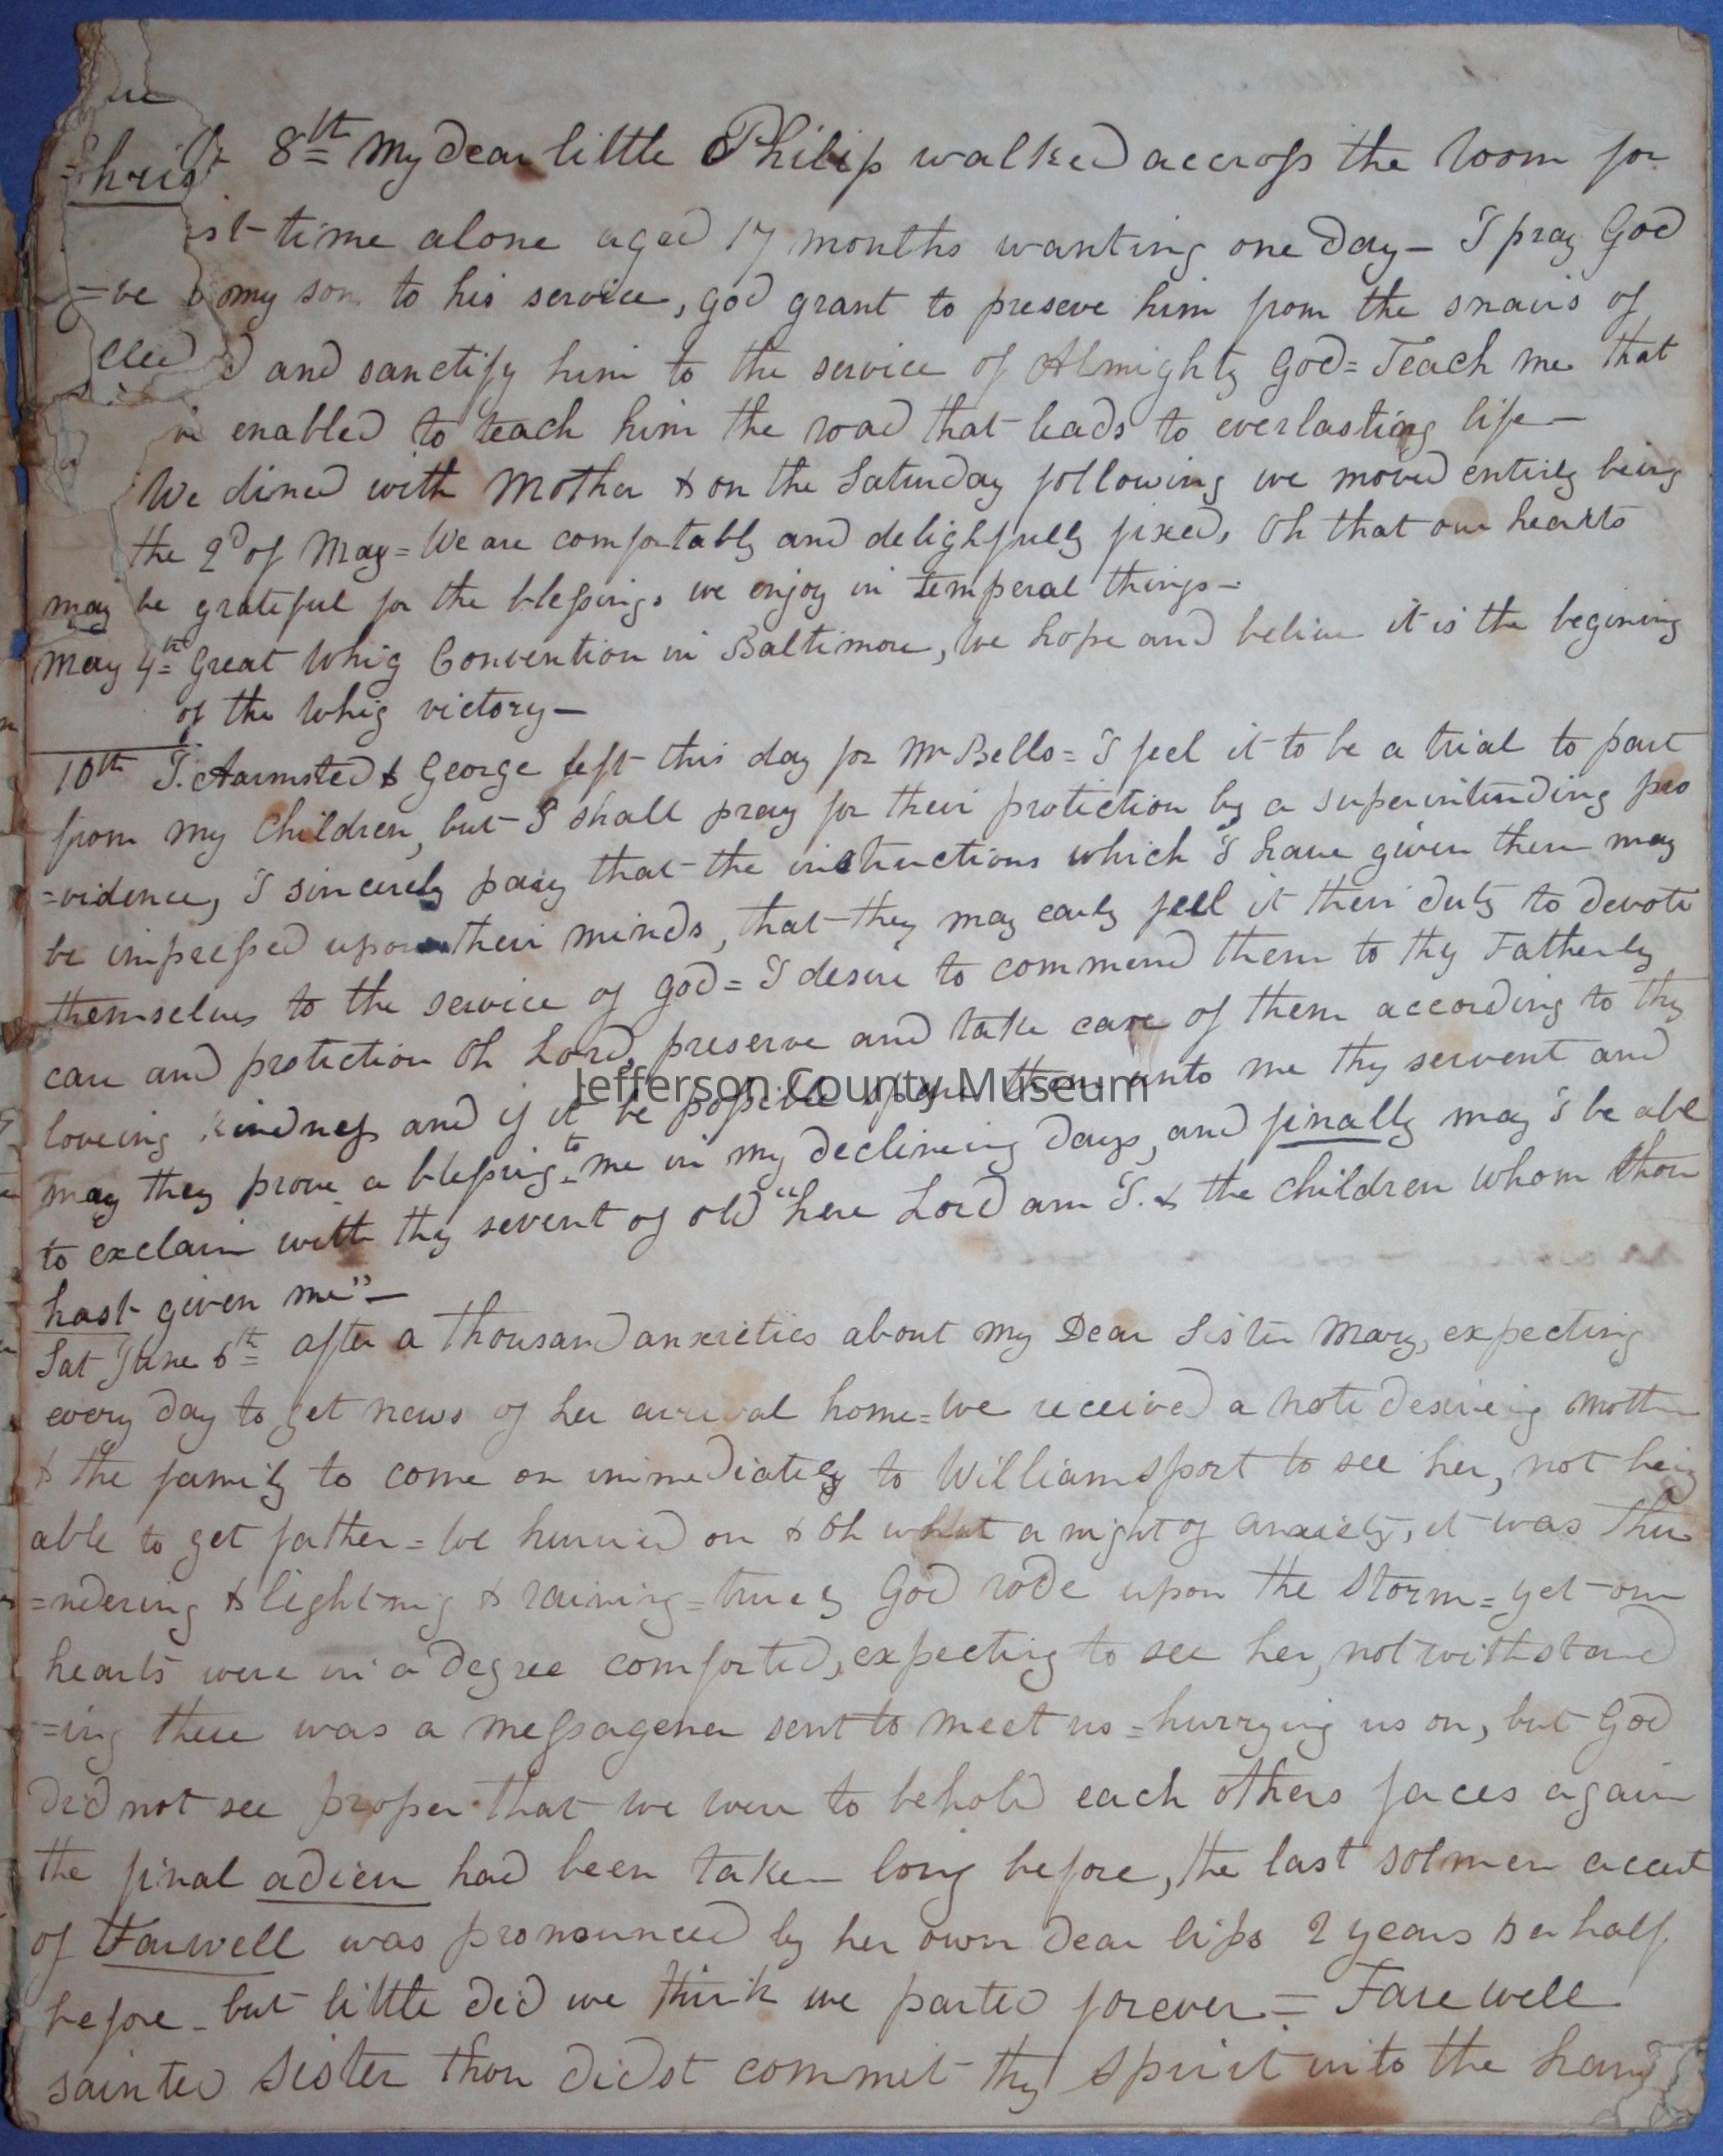 =hrist 8th My dear little Philip walked accross the room for
ist time alone aged 17 months wanting one day — I pray God
my son to his service, god grant to preseve him from the snairs of
and sanctify him to the service of Almighty God = Teach me that
enabled to teach him the road that leads to everlasting life —
We dined with Mother & on the Saturday following we moved entirely being
the 2d of May = We are comfortably and delightfully fixed, Oh that our hearts
may be grateful for the blessings we enjoy in temperal things —
May 4th Great Whig Convention in Baltimore, We hope and believe it is the begining
of the Whig victory —
10th T. Aarmsted & George left this day for Mr Bells = I feel it to be a trial to part
from my Children, but I shall pray for their protiction by a superintinding pro
=vidence, I sincerely pray that the instructions which I have given them may
be impressed upon their minds, that they may early feel it their duty to devote
themselves to the service of god = I desire to commend them to thy Fatherly
care and protiction Oh Lord, preserve and take care of them according to thy
loveing kindness and if it be possible spare them unto me thy servent and
may they prove a blessing to me in my declineing days, and finally may I be able
to exclaim with thy sevent of old "here Lord am I. & the children whom thou
hast given me" —
Sat June 6th after a thousand anxieties about my Dear Sister Mary, expecting
every day to get news of her arrival home = we received a note desireing Mother
& the family to come on immediately to Williamsport to see her, not being
able to get father = We hurried on & Oh what a night of anxiety, it was thu
=ndering & lightning & raining = truely God rode upon the Storm = yet our
hearts were in a degree comforted, expecting to see her, notwithstand
=ing there was a messagener sent to meet us = hurrying us on, but God
did not see proper that we were to behold each others faces again
the final adieu had been taken long before, the last solmen accent
of Farwell was pronounced by her own dear lips 2 years & a half
before - but little did we think we parted forever = Farewell
sainted Sister thou didst commit thy spirit into the hand
Jefferson County Museum